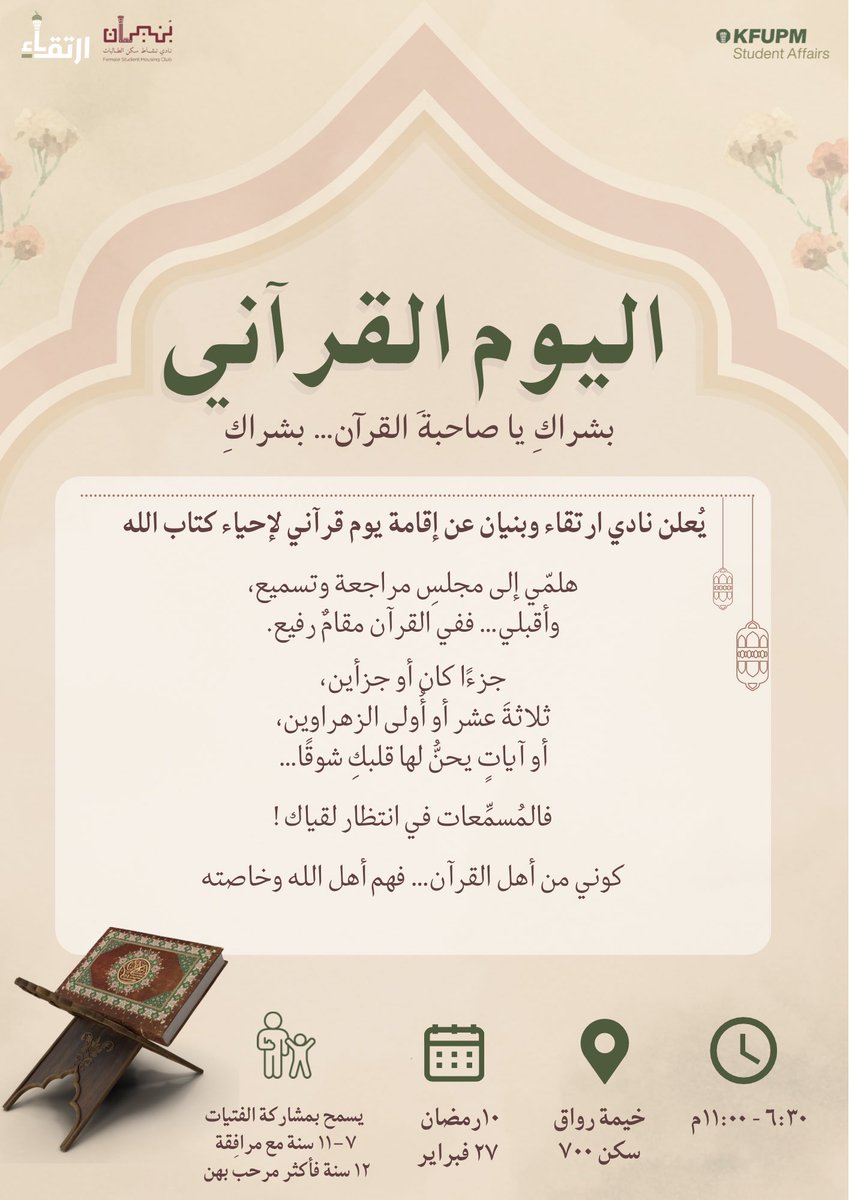 ارتقاء
بنيان
نادي نشاط سكن الطالبات
Female Student Housing Club
KFUPM
Student Affairs
اليوم القرآني
بشراكِ يا صاحبةَ القرآن... بشراكِ
يُعلن نادي ارتقاء وبنيان عن إقامة يوم قرآني لإحياء كتاب الله
هلمّي إلى مجلسِ مراجعة وتسميع،
وأقبلي... ففي القرآن مقامٌ رفيع.
جزءًا كان أو جزأين،
ثلاثةَ عشر أو أُولى الزهراوين،
أو آياتٍ يحنُّ لها قلبكِ شوقًا...
فالمُسمِّعات في انتظار لقياك!
كوني من أهل القرآن... فهم أهل الله وخاصته
٦:٣٠ - ١١:٠٠م
خيمة رواق
سكن ٧٠٠
١٠رمضان
٢٧ فبراير
يسمح بمشاركة الفتيات
٧-١١ سنة مع مرافِقة
١٢ سنة فأكثر مرحب بهن